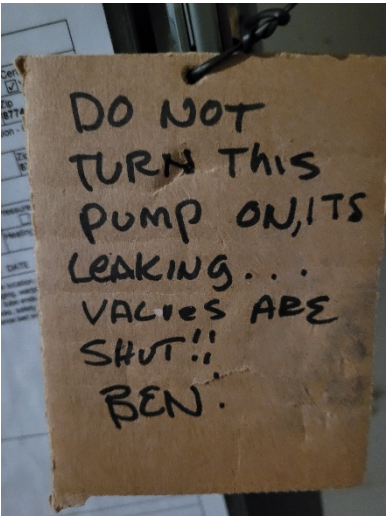 DO NOT
TURN THis
PUMP ON, ITS
LEAKING...
VALVES ARE
SHUT!!
BEN.
Zip
DATE